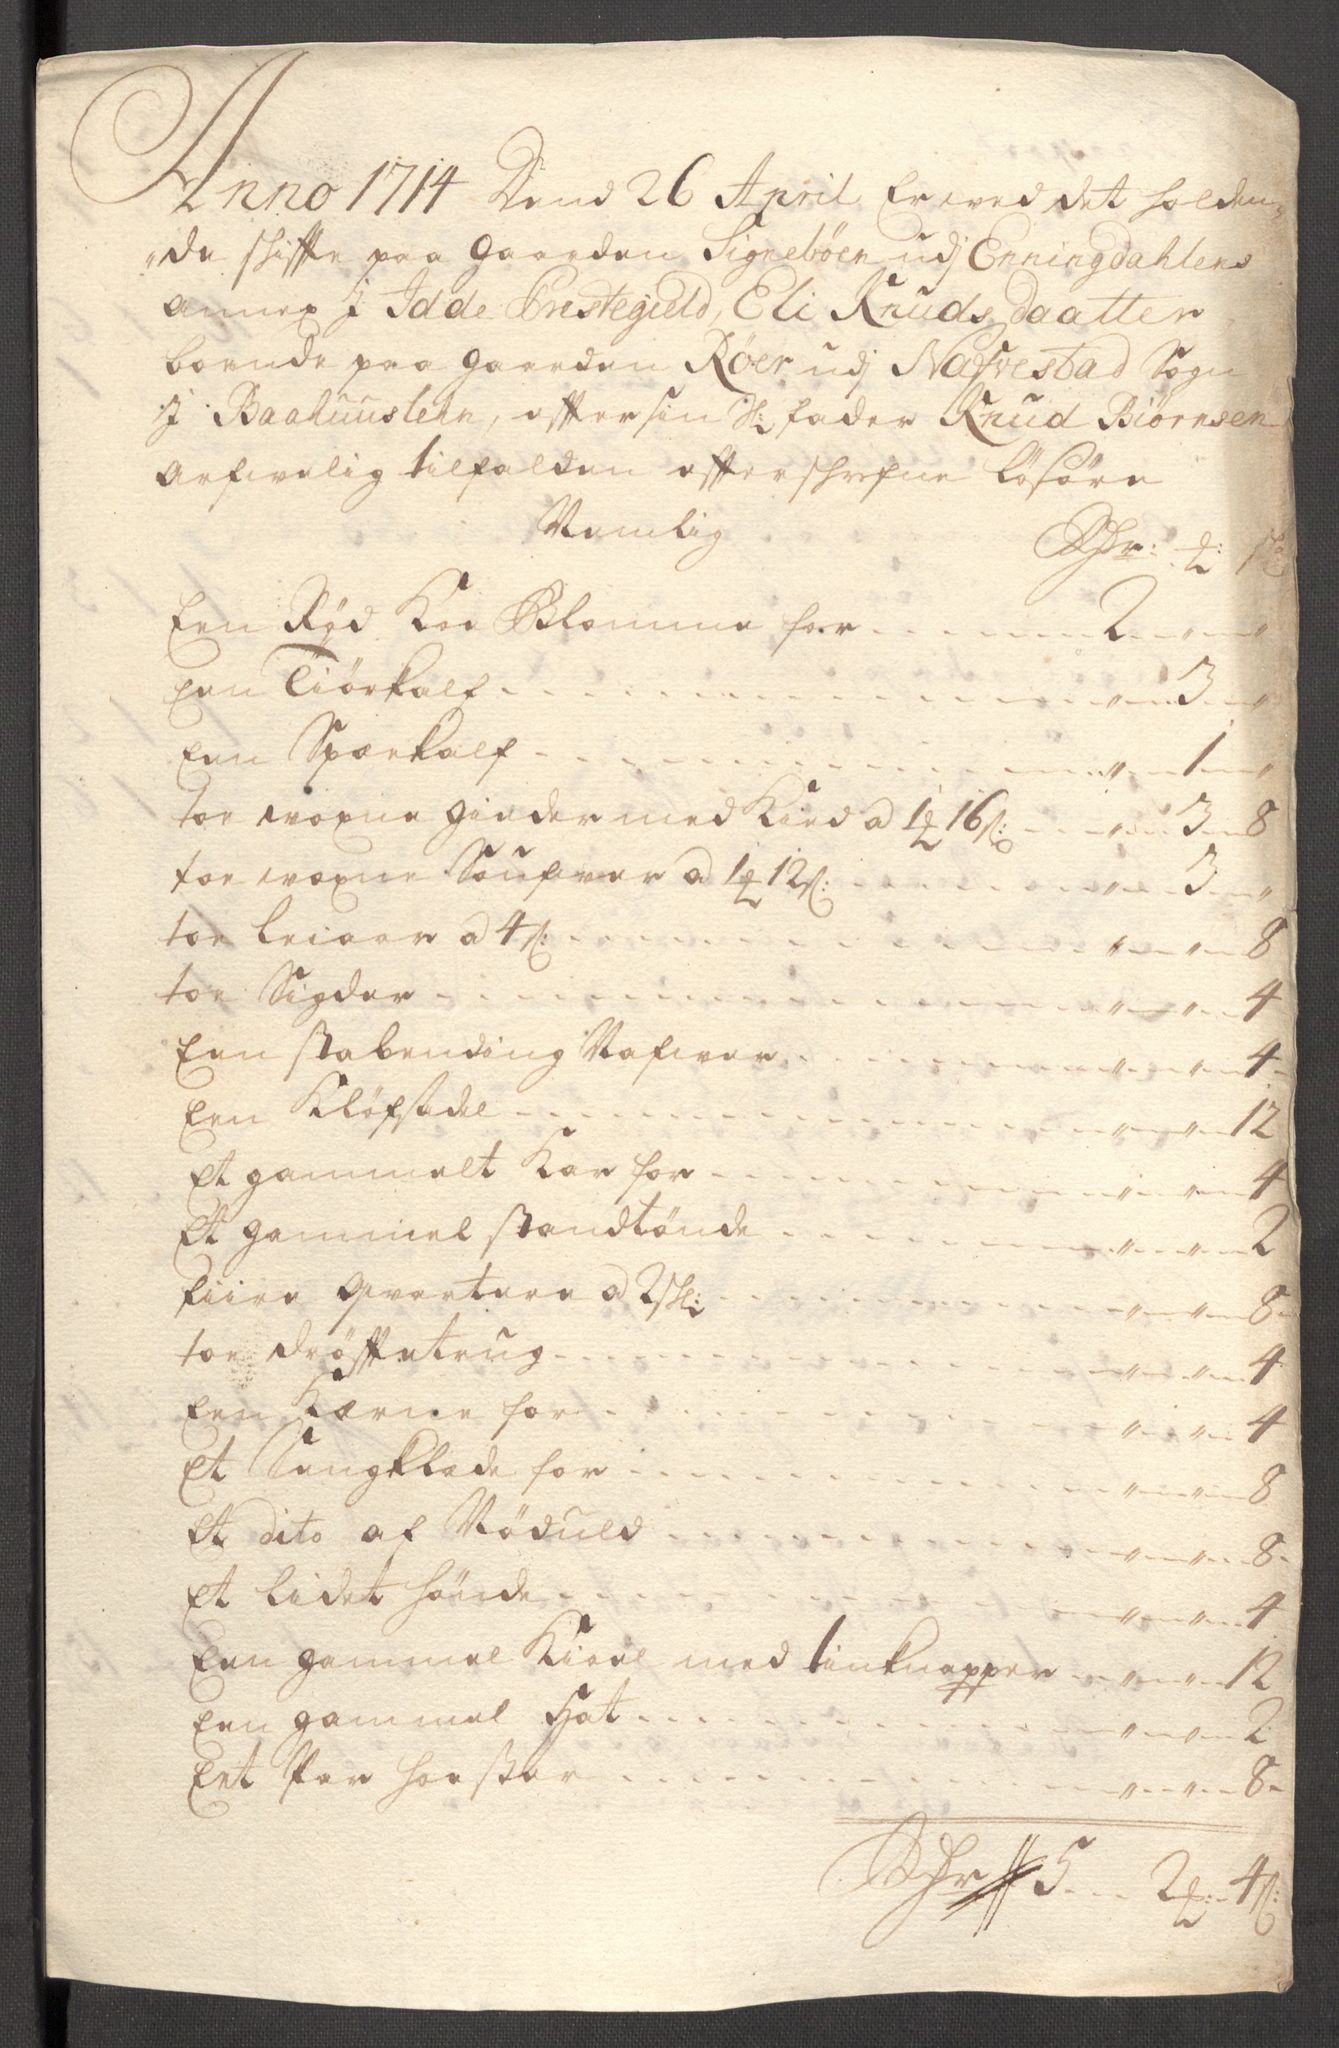 Anno 1714 Dend 26 April Er ved det holden¬
de skiffte paa gaarden Signebøen udj Enningdahlens
annex J Idde Prestegield, Eli Knuds daatter
boende paa gaarden Røer udj Nafvestad Sogn
J Baahuuslehn, effter sin Sl: fader Knud Biørnsen
arfvelig tilfalden effterschrefne Løsøre
Nemlig
Rdr: ꝶ: s:
Een Rød Koe Blomme for 2 " "
Een Tiørkalf " 3 "
Een Spærkalf " 1 "
toe voxne gieder med Kied a 1 ꝶ 16 s: " 3 8
toe voxne Soufver a 1 ꝶ 12 s: " 3 "
toe leiaer a 4 s: " " 8
toe Sigder " " 4
Een stabending Nafver " " 4
Een Kløfsadel " " 12
Et gammelt Kar for " " 4
Et gammel standtønde " " 2
fiire qvartere a 2 sk: " " 8
toe drøffetrug " " 4
Een Kærne for " " 4
Et Sengklæde for " " 8
Et dito af Nøduld " " 8
Et lidet hønde " " 4
Een gammel Kioel med tinknapper " " 12
Een gammel Hat " " 2
Eet Par hoeßer " " 8
Rdr 5 2 ꝶ: 4 s: